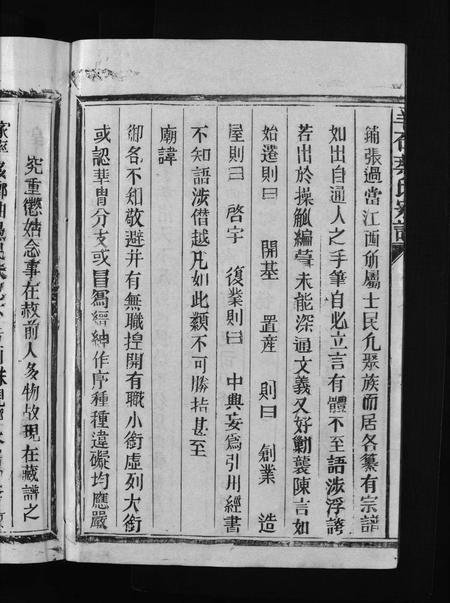 鋪張過當江西所屬士民凢聚族而居各纂有宗譜
如出自通人之手筆自必立言有體不至語涉浮誇
若出於操觚編輩未能深通文義又好勦襲陳言如
始遷則曰 開基 置産 則曰 創業 造
屋則曰 啓宇 復業則曰 中興妄爲引用經書
不知語涉僣越凡如此類不可勝指甚至
廟諱
御名不知敬避并有無職揑開有職小銜虛列大銜
或認華胄分支或冒爲縉紳作序種種違礙均應嚴
究重懲姑念事在赦前人多物故現在藏譜之